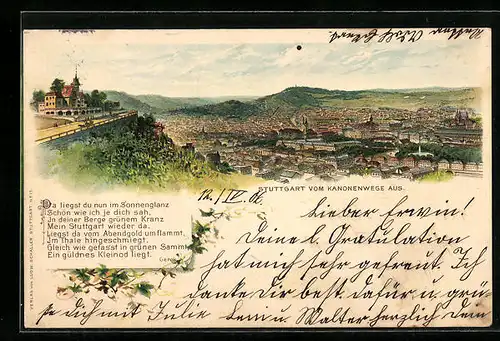 STUTTGART VOM KANONENWEGE AUS.
Da liegst du nun im Sonnenglanz
Schön wie ich je dich sah,
In deiner Berge grünem Kranz
Mein Stuttgart wieder da.
Liegst da vom Abendgold umflammt,
Im Thale hingeschmiegt.
Gleich wie gefasst in grünen Sammt
Ein güldnes Kleinod liegt.
VERLAG VON LUDW. SCHALLER, STUTTGART
12./IV. 06.
Lieber Erwin!
Deine l. Gratulation
hat mich sehr gefreut. Ich
danke Dir best. dafür u. grü-
ße dich mit Julie u. Walter herzlich Dein